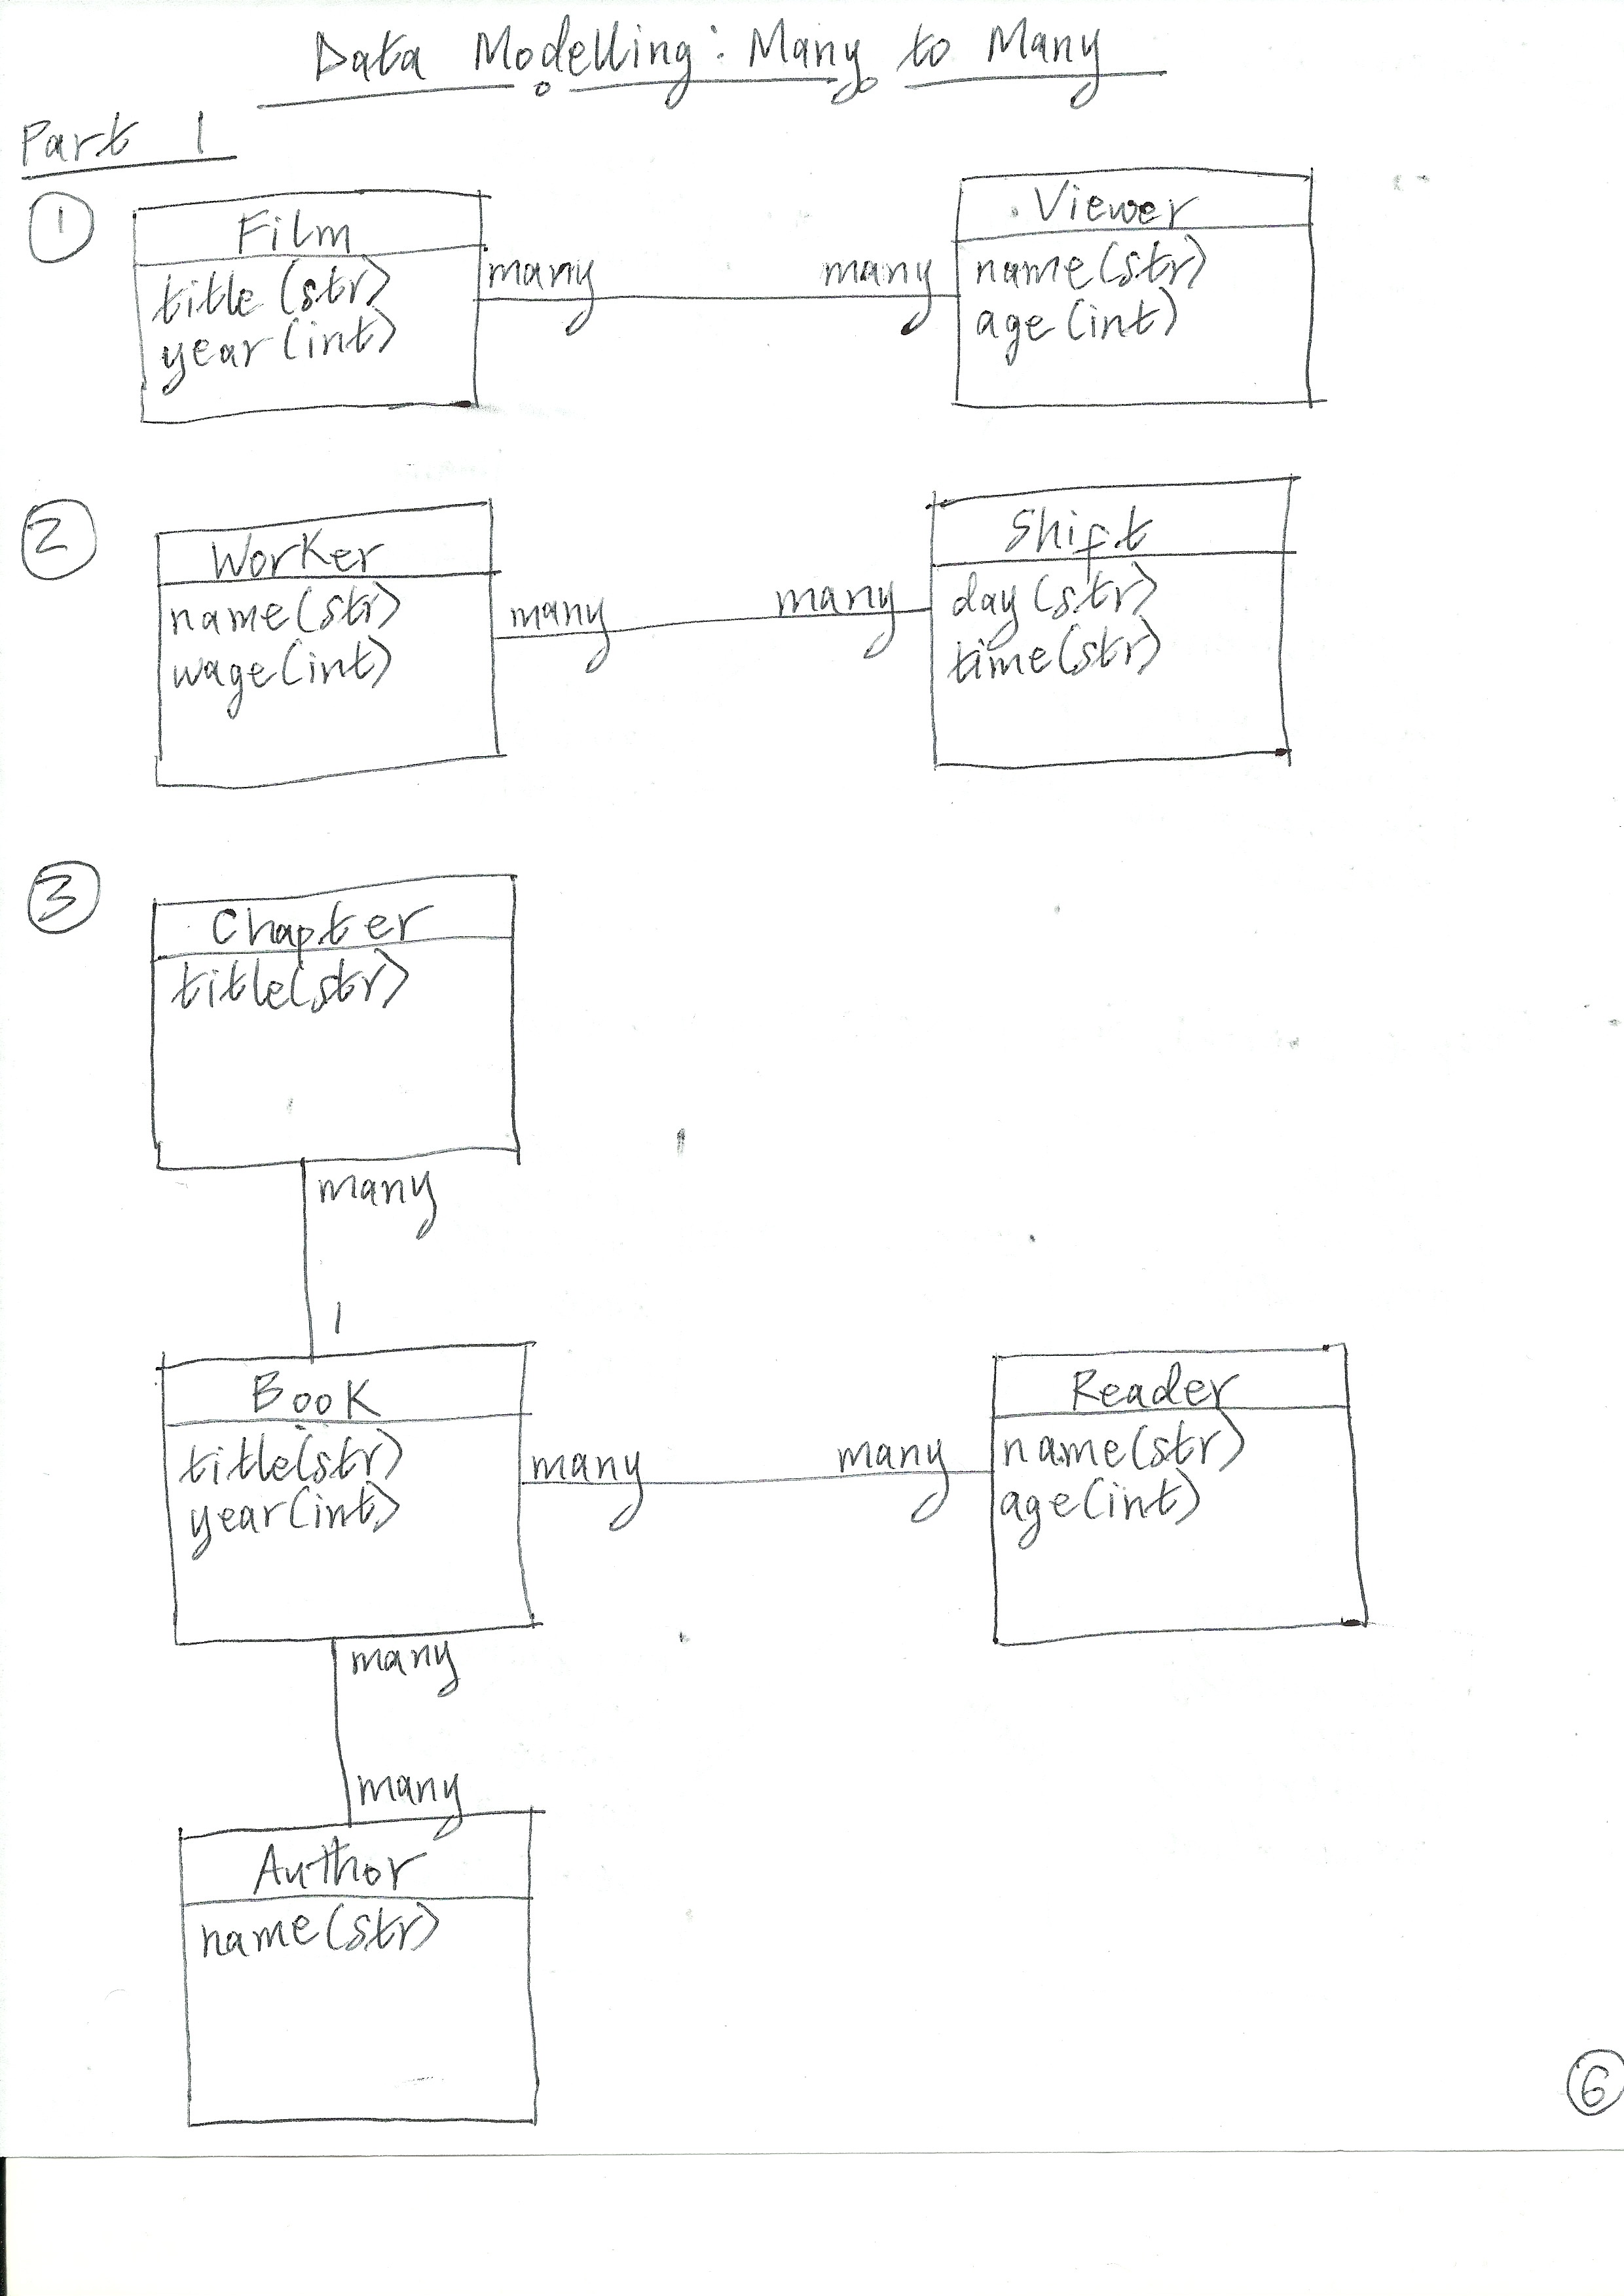 Data Modelling: Many to Many
Part 1
1
Film
title (str)
year (int)
many
many
Viewer
name (str)
age (int)
2
Worker
name (str)
wage (int)
many
many
Shift
day (str)
time (str)
3
Chapter
title (str)
many
1
Book
title (str)
year (int)
many
many
Reader
name (str)
age (int)
many
many
Author
name (str)
6